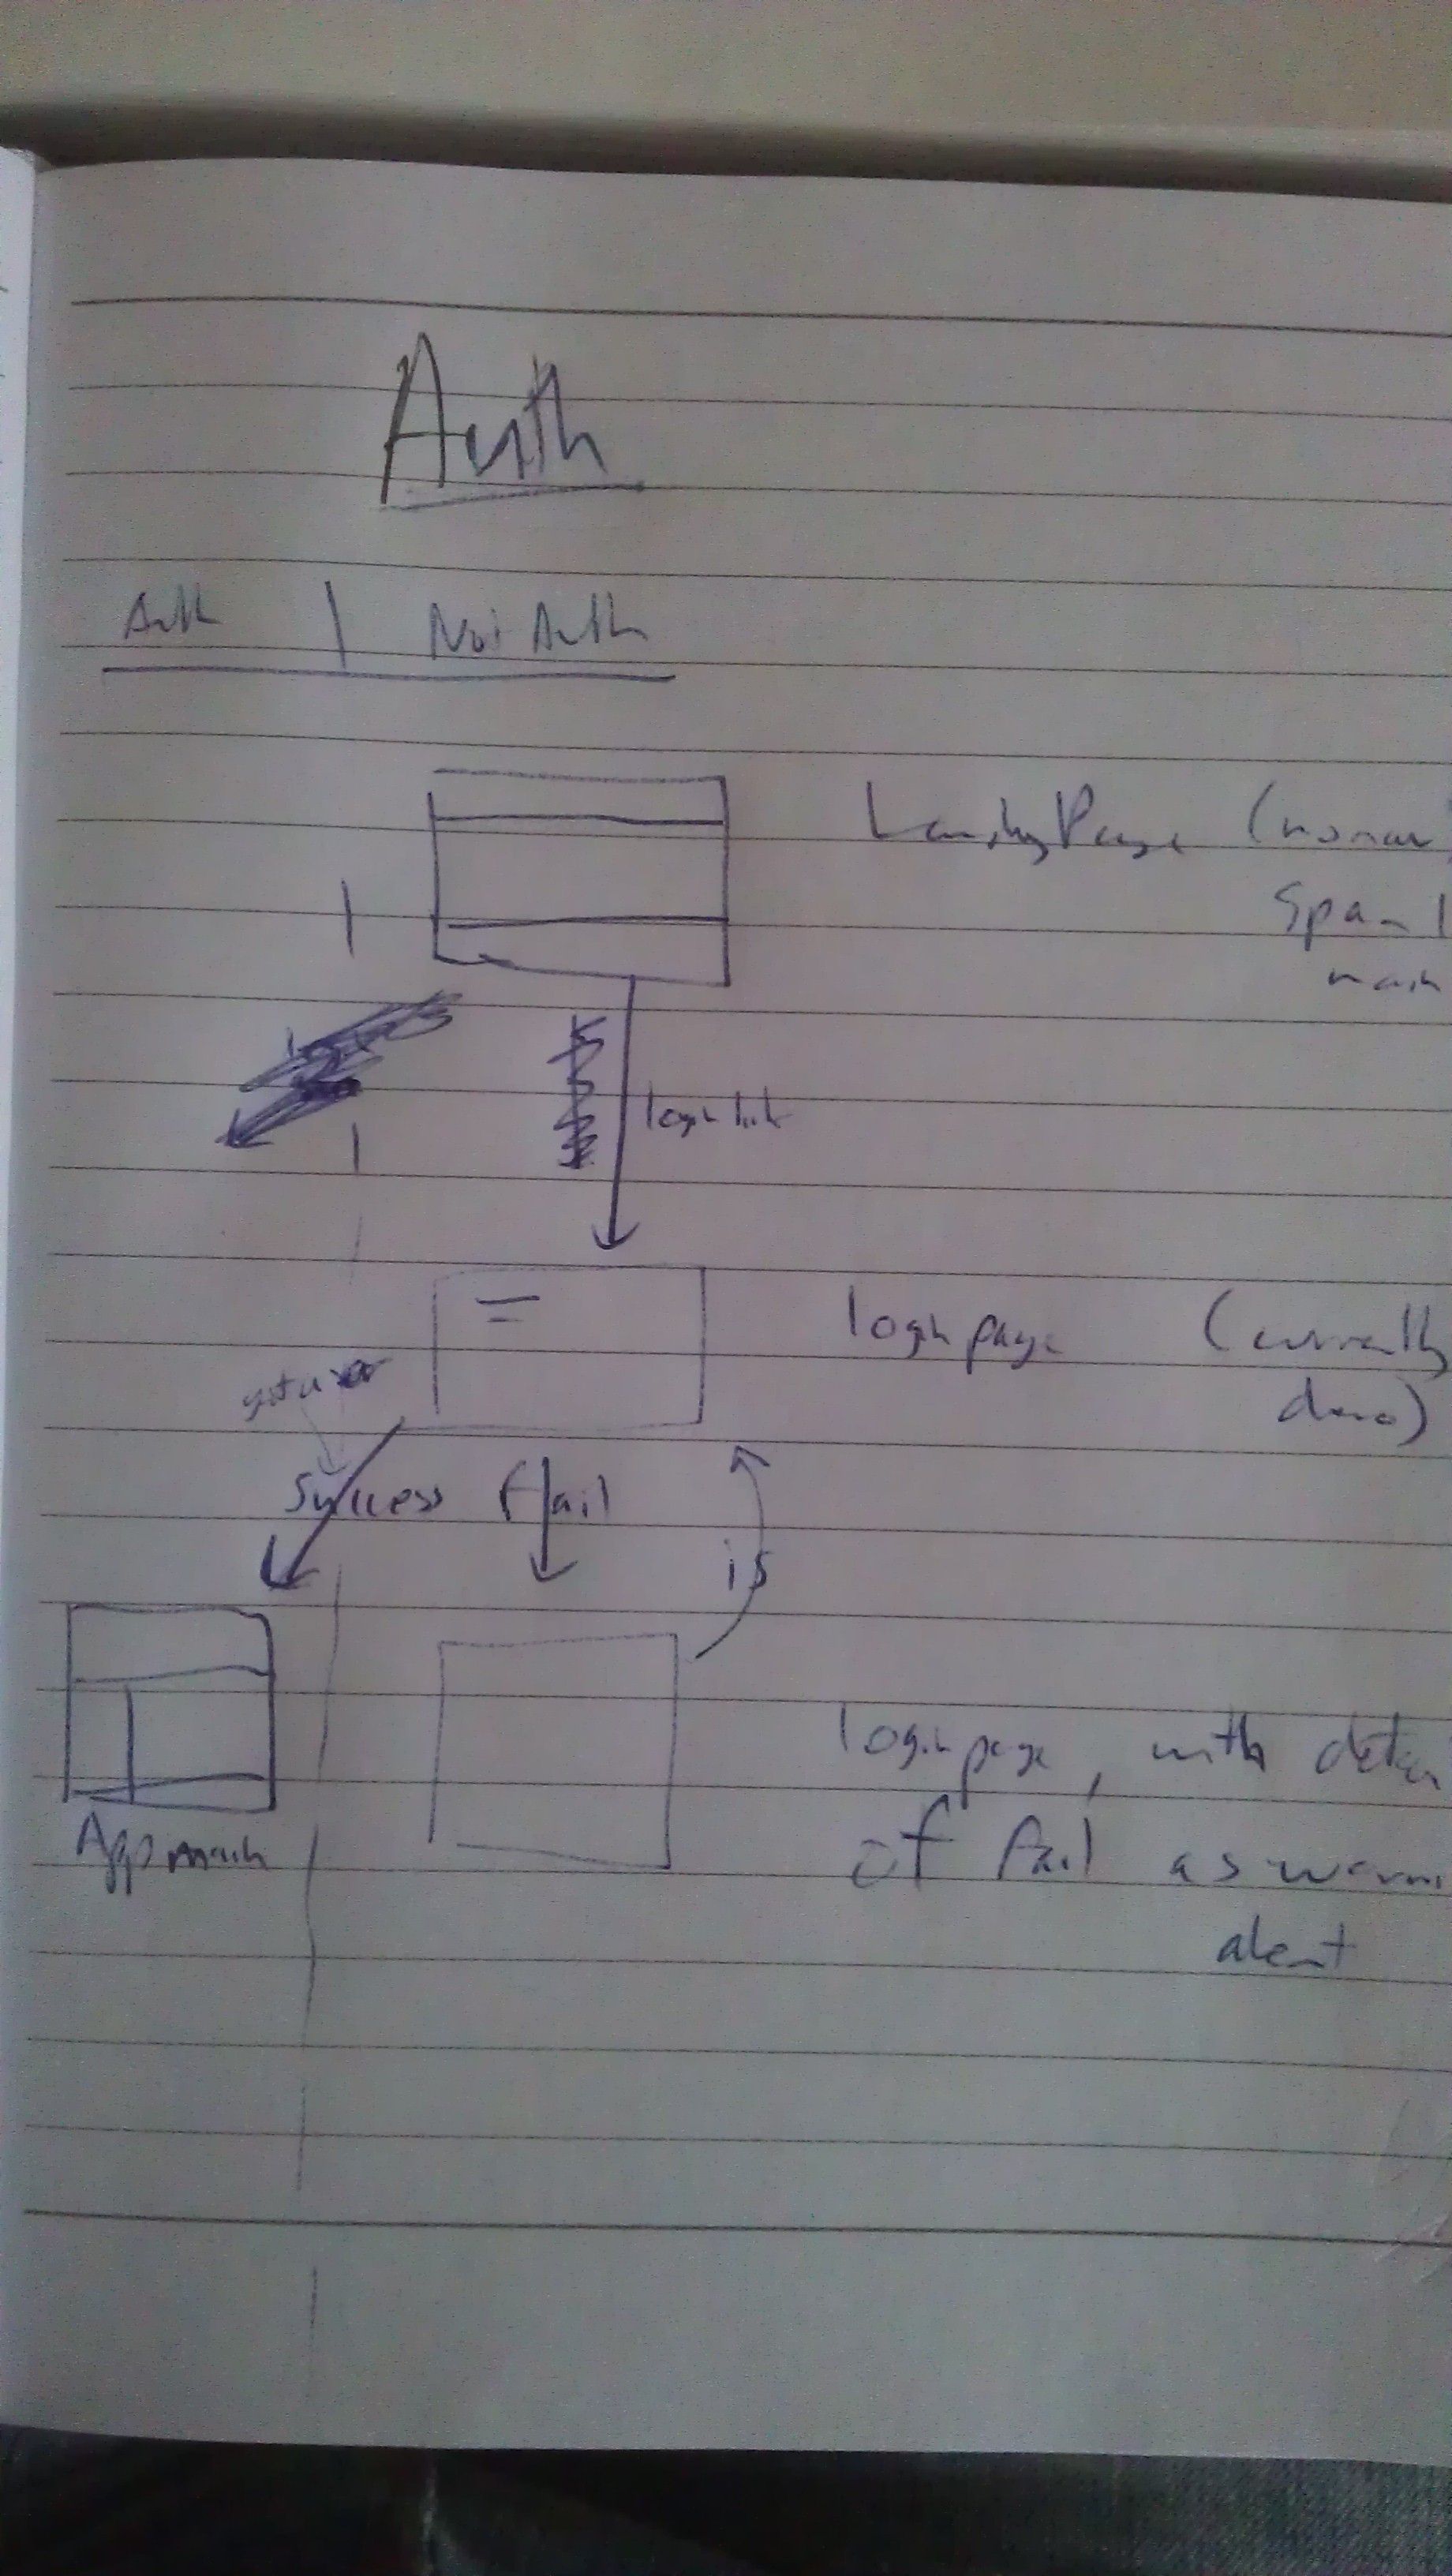 Auth
Auth | Not Auth
Landing Page (no nav,
Span 1
main
login link
login page (currently
demo)
Success fail
is
App main
login page, with detai
of fail as warni
alert